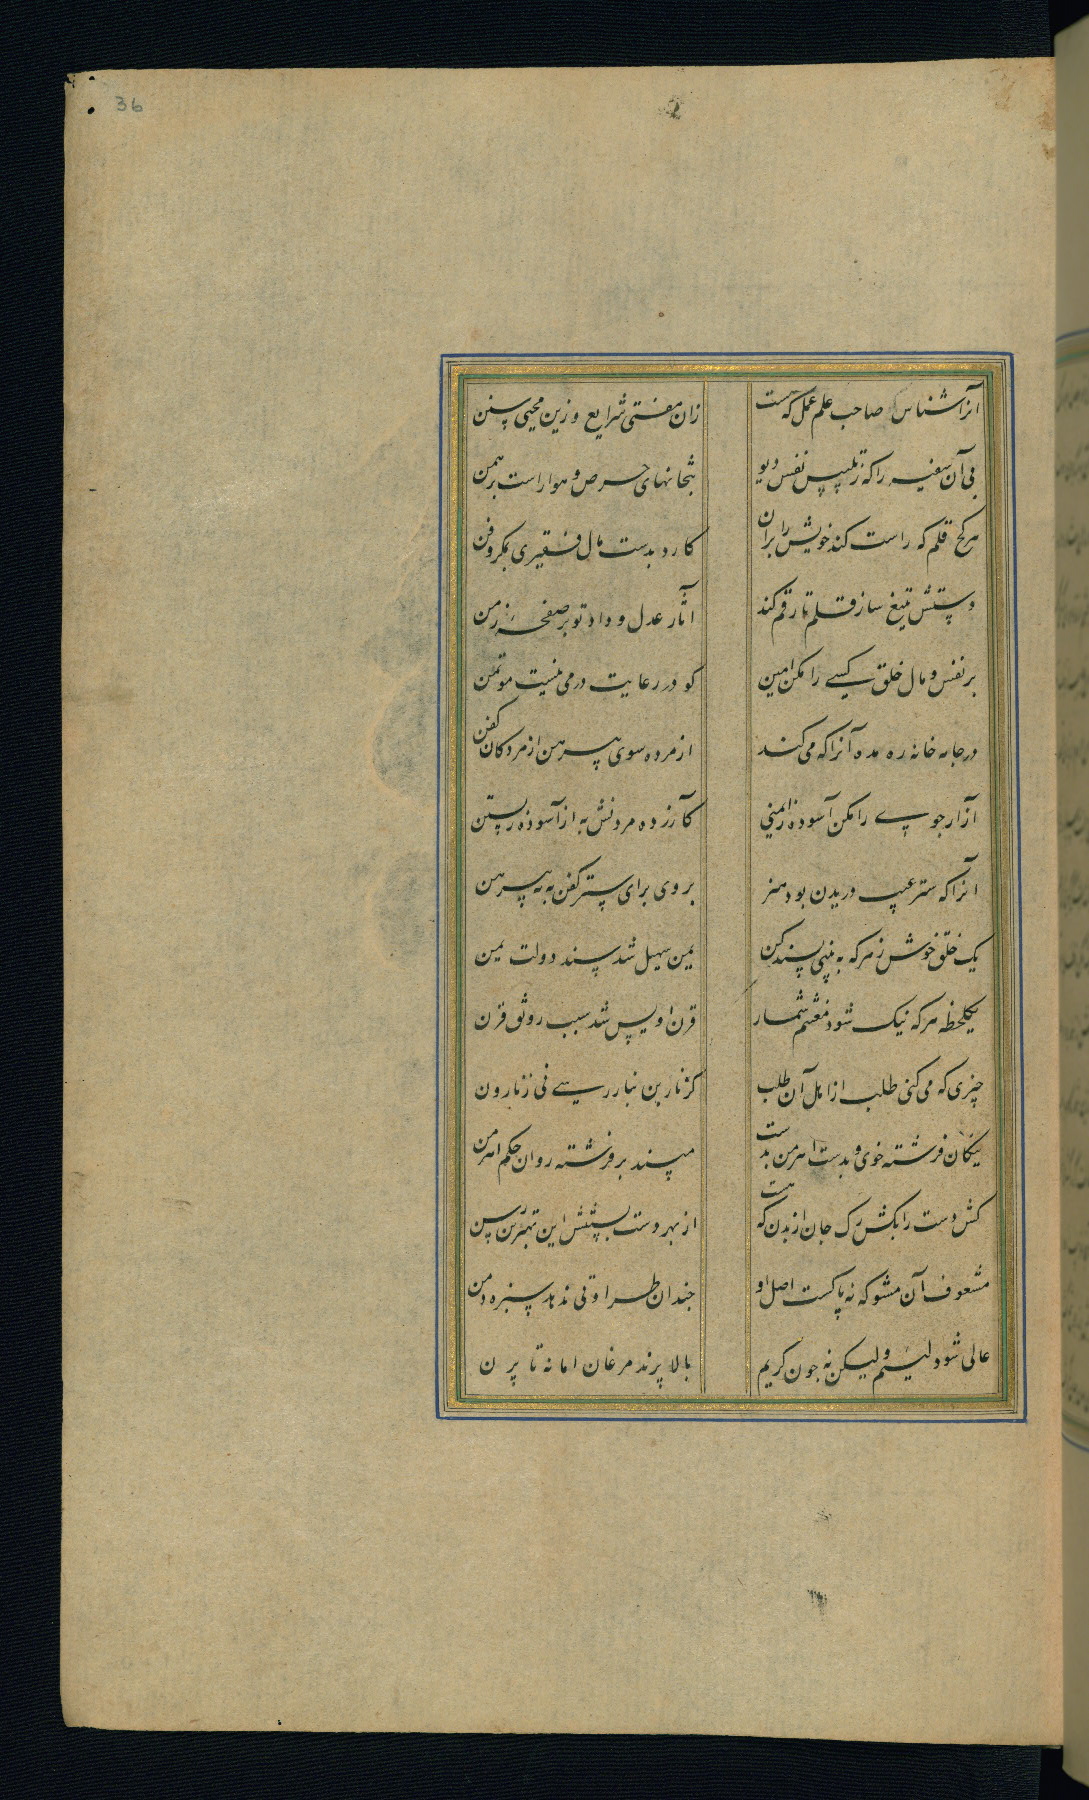 36
آنرا شناس صاحب علم و عمل که هست
زان مفتی شرایع و زین محیی سنن
نی آن سفیه را که ز تلبیس نفس و دیو
بتخانهای حرص و هوا راست برهمن
هر کج قلم که راست کند خویش را بران
کارد بدست مال فقیری بمکر و فن
دستش بتیغ ساز قلم تا رقم کند
آثار عدل و داد تو بر صفحه زمن
بر نفس و مال خلق کسی را مکن امین
کو در رعایت درمی نیست موتمن
در جامه خانه ره مده آنرا که می‌کند
از مرده سوی پیرهن از مردکان کفن
آزار جوی را مکن آسوده ز ایمنی
کآزرده مردنش به از آسوده زیستن
آنرا که ستر عیب دریدن بود هنر
بر وی برای ستر کفن به که پیرهن
یک خلق خوش ز هر که ببینی پسند کن
یمن سهیل شد سند دولت یمن
یکلحظه هر که نیک شود مغتنم شمار
قرن اویس شد سبب رونق قرن
چیزی که می‌کنی طلب از اهل آن طلب
کز نار بن بنار رسی نی ز نارون
نیکان فرشته خوی و بدست اهرمن بدست
مپسند بر فرشته روان حکم اهرمن
کش دست را بکش رک جان از بدن که هست
از بهر دست بستنش این بهترین رسن
مشعوف آن مشو که نه پاکست اصل او
چندان طراوتی ندهد سبزه دمن
عالی شود لئیم ولیکن نه چون کریم
بالا پرند مرغان اما نه تا پرن